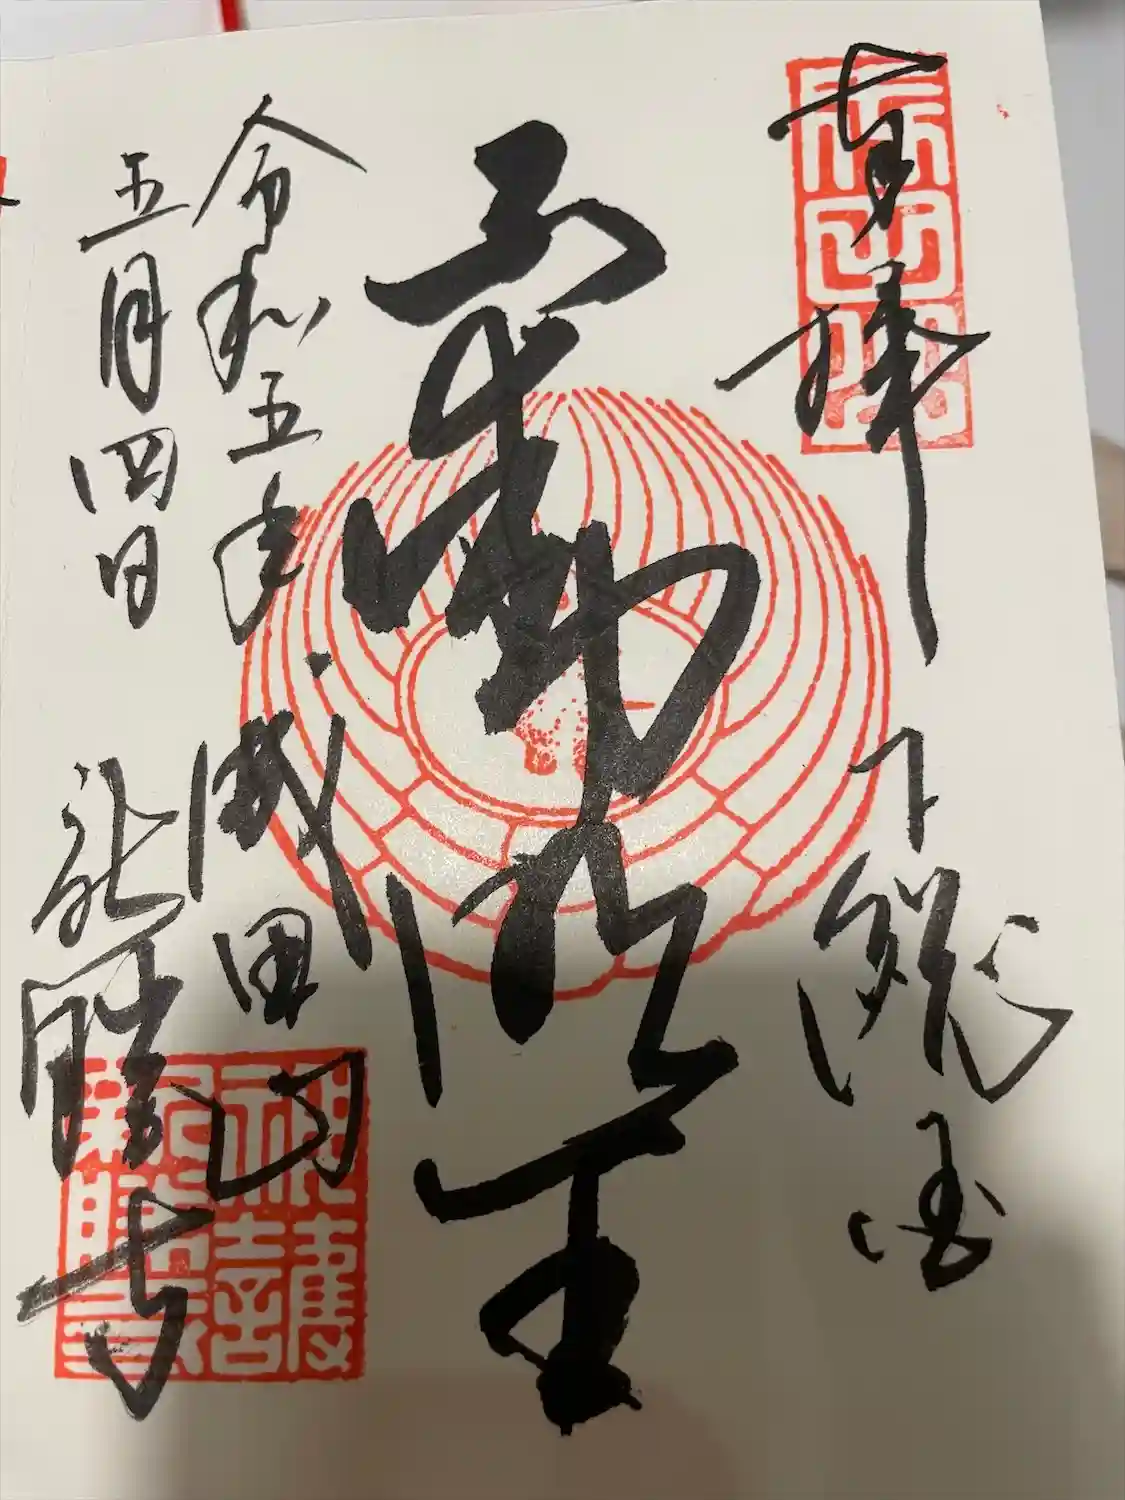 奉拝 下総国
不動明王
令和五年 成田山
五月四日 新勝寺
成田山
神護
新勝寺